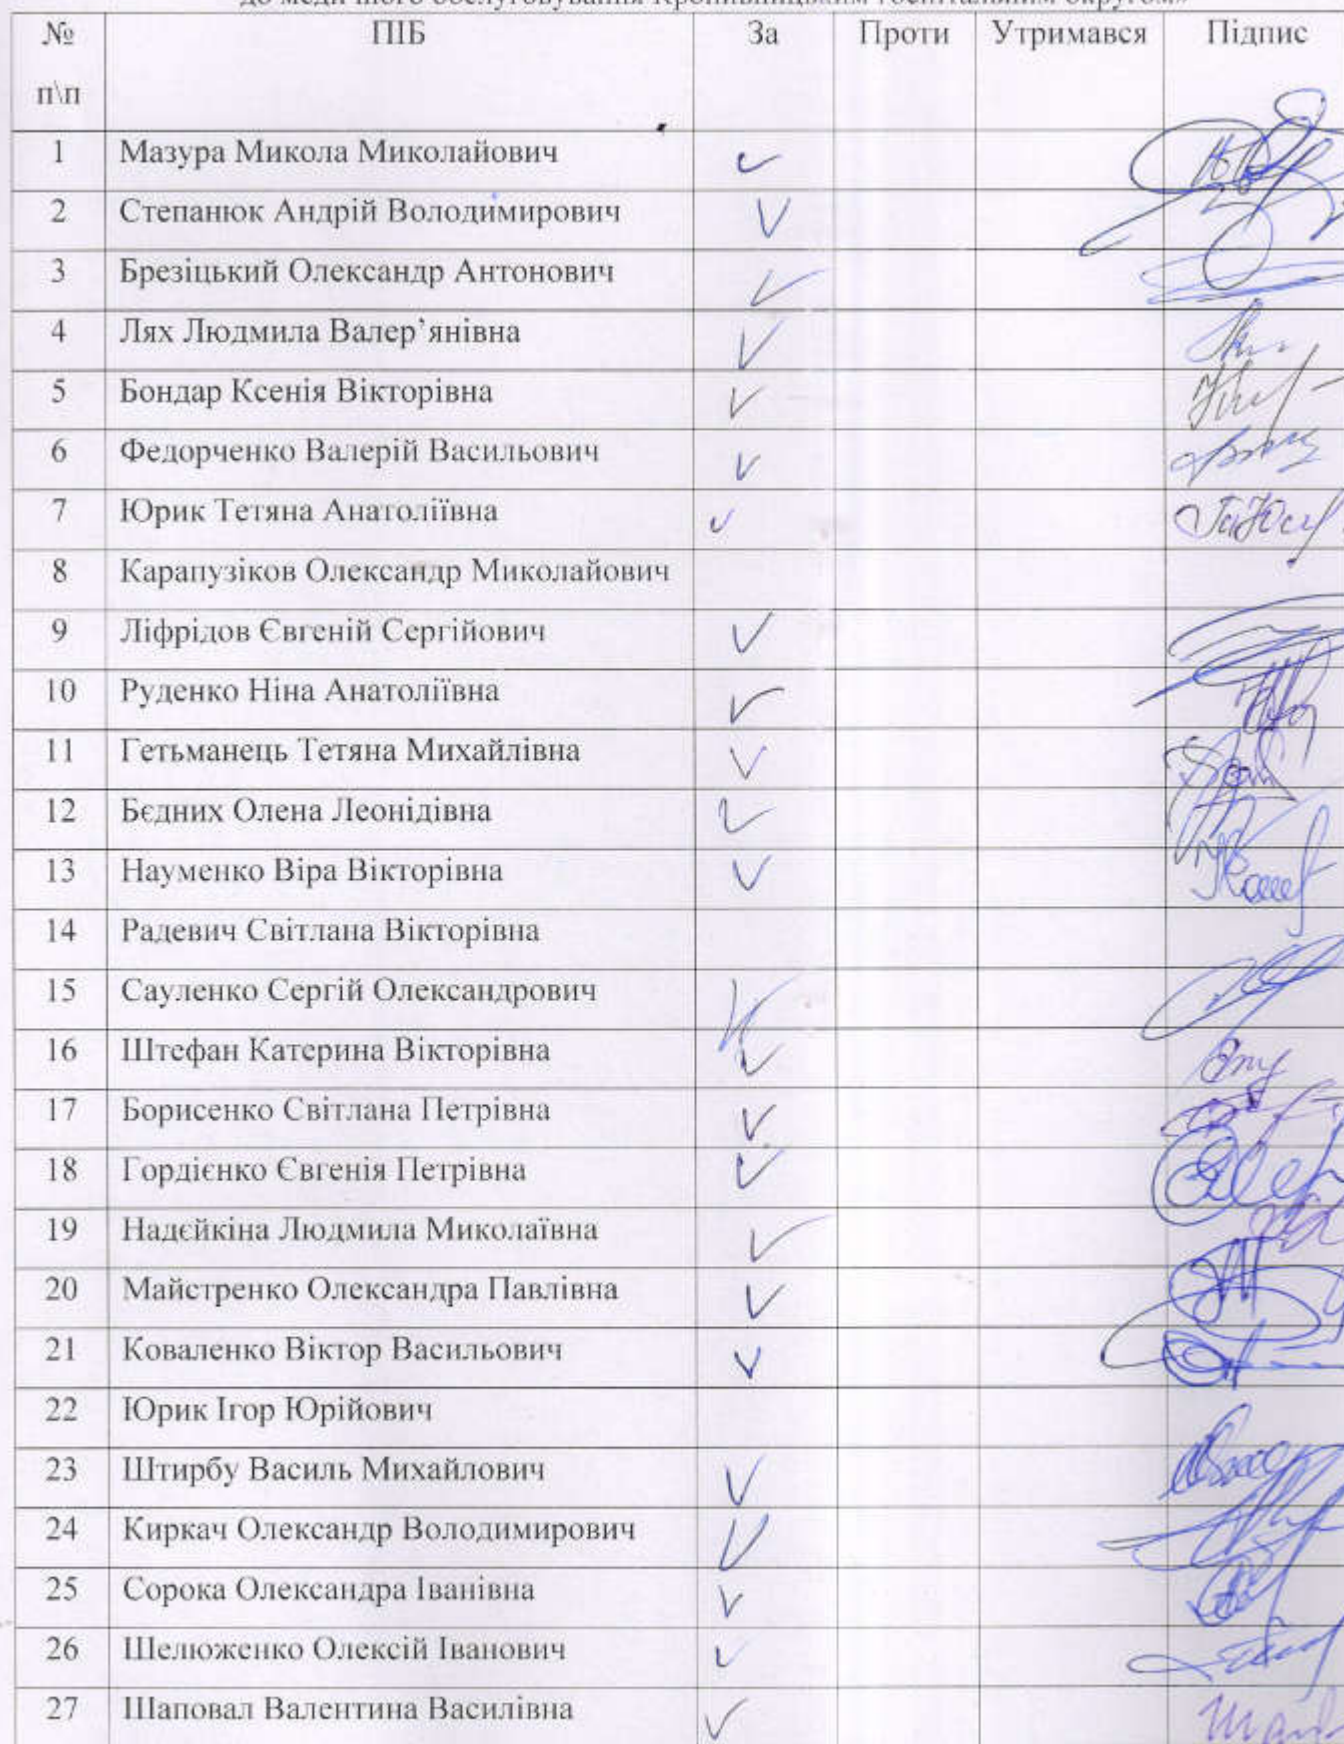 до медичного обслуговування Кропивницьким госпітальним округом»
№ п\п ПІБ За Проти Утримався Підпис
1 Мазура Микола Миколайович
2 Степанюк Андрій Володимирович
3 Брезіцький Олександр Антонович
4 Лях Людмила Валер’янівна
5 Бондар Ксенія Вікторівна
6 Федорченко Валерій Васильович
7 Юрик Тетяна Анатоліївна
8 Карапузіков Олександр Миколайович
9 Ліфрідов Євгеній Сергійович
10 Руденко Ніна Анатоліївна
11 Гетьманець Тетяна Михайлівна
12 Бєдних Олена Леонідівна
13 Науменко Віра Вікторівна
14 Радевич Світлана Вікторівна
15 Сауленко Сергій Олександрович
16 Штефан Катерина Вікторівна
17 Борисенко Світлана Петрівна
18 Гордієнко Євгенія Петрівна
19 Надєйкіна Людмила Миколаївна
20 Майстренко Олександра Павлівна
21 Коваленко Віктор Васильович
22 Юрик Ігор Юрійович
23 Штирбу Василь Михайлович
24 Киркач Олександр Володимирович
25 Сорока Олександра Іванівна
26 Шелюженко Олексій Іванович
27 Шаповал Валентина Василівна